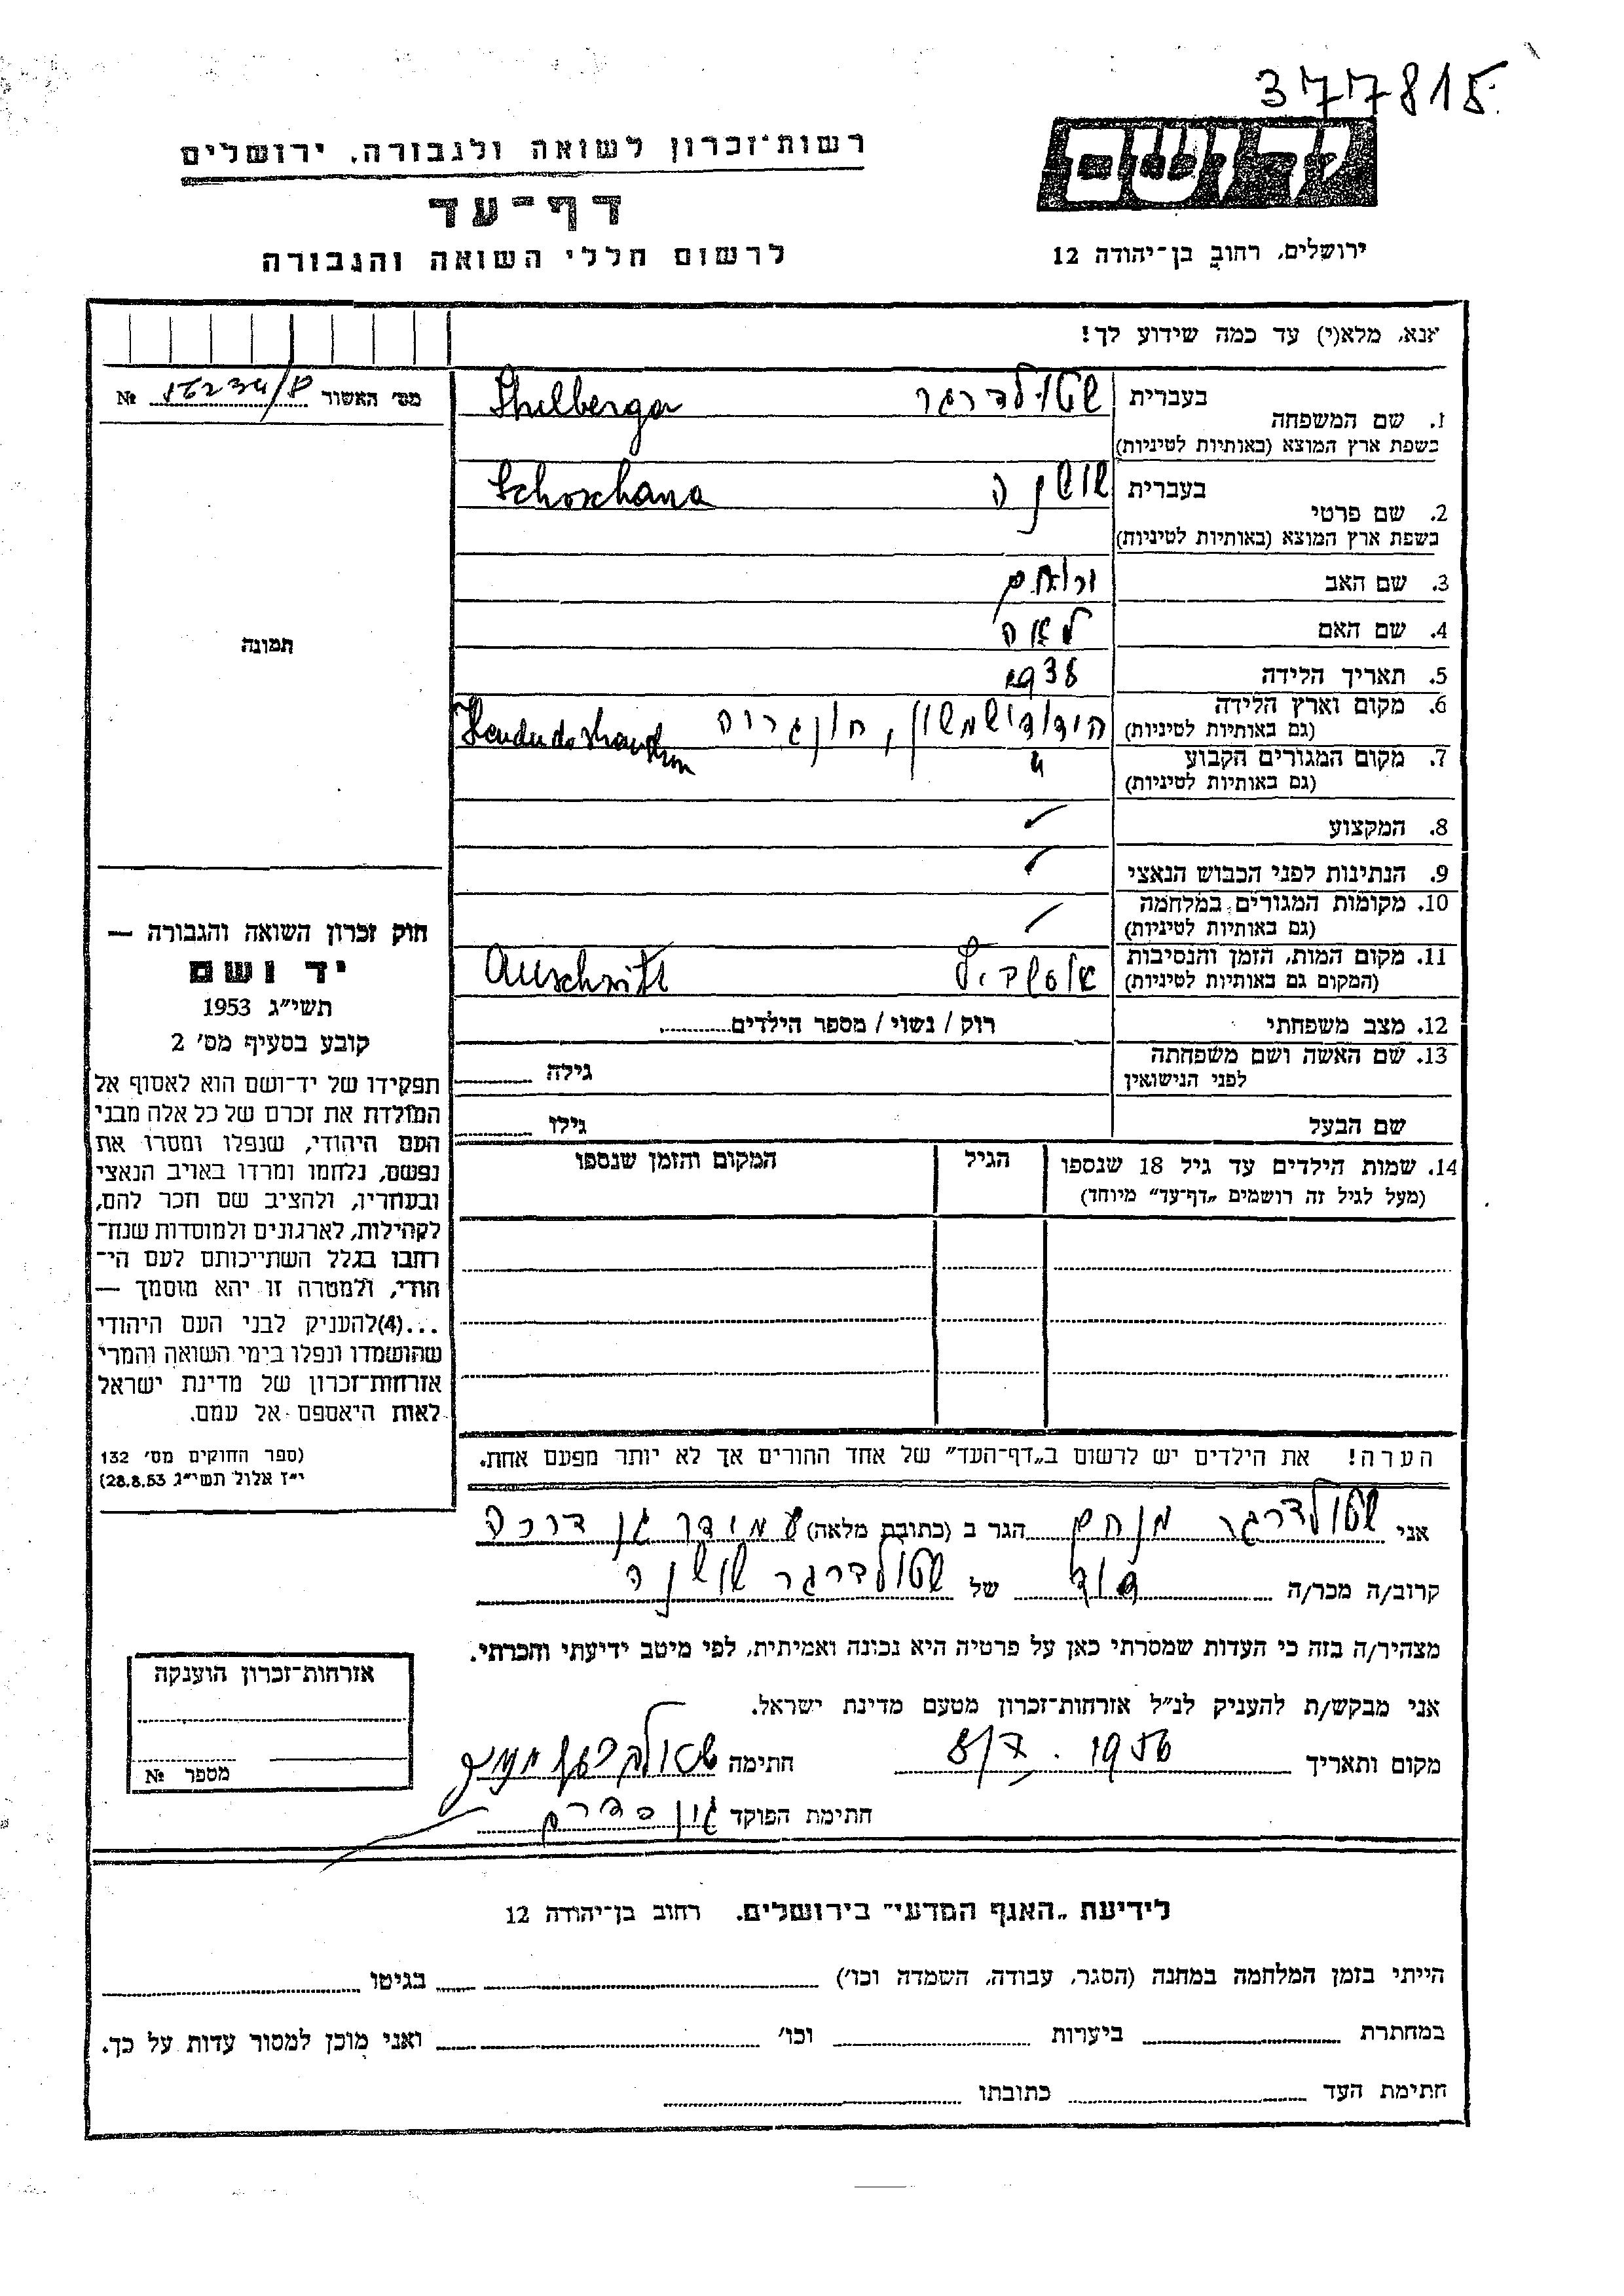 377815
רשות־זכרון לשואה ולגבורה, ירושלים
דף־עד
לרשום חללי השואה והגבורה
ירושלים, רחוב בן־יהודה 12
אנא, מלא(י) עד כמה שידוע לך!
מס׳ האשור №
1. שם המשפחה
בעברית
בשפת ארץ המוצא (באותיות לטיניות)
2. שם פרטי
בעברית שושנה Schoschana
בשפת ארץ המוצא (באותיות לטיניות)
3. שם האב
4. שם האם לאה
5. תאריך הלידה 1938
6. מקום וארץ הלידה
(גם באותיות לטיניות)
7. מקום המגורים הקבוע "
(גם באותיות לטיניות)
8. המקצוע
9. הנתינות לפני הכבוש הנאצי
10. מקומות המגורים במלחמה
(גם באותיות לטיניות)
11. מקום המות, הזמן והנסיבות
(המקום גם באותיות לטיניות)
12. מצב משפחתי רוק / נשוי / מספר הילדים
13. שם האשה ושם משפחתה
לפני הנישואין גילה
שם הבעל גילו
14. שמות הילדים עד גיל 18 שנספו הגיל המקום והזמן שנספו
(מעל לגיל זה רושמים „דף־עד״ מיוחד)
הערה! את הילדים יש לרשום ב„דף־העד״ של אחד ההורים אך לא יותר מפעם אחת.
תמונה
חוק זכרון השואה והגבורה —
יד ושם
תשי״ג 1953
קובע בסעיף מס׳ 2
תפקידו של יד־ושם הוא לאסוף אל
המולדת את זכרם של כל אלה מבני
העם היהודי, שנפלו ומסרו את
נפשם, נלחמו ומרדו באויב הנאצי
ובעוזריו, ולהציב שם וזכר להם,
לקהילות, לארגונים ולמוסדות שנח־
רחבו בגלל השתייכותם לעם הי־
הודי, ולמטרה זו יהא מוסמך —
...(4)להעניק לבני העם היהודי
שהושמדו ונפלו בימי השואה והמרי
אזרחות־זכרון של מדינת ישראל
לאות היאספם אל עמם.
(ספר החוקים מס׳ 132
י״ז אלול תשי״ג 28.8.53)
אני שטולדרגר מנחם הגר ב (כתובת מלאה) עמידר גן דרכה
קרוב/ה מכר/ה דוד של שטולדרגר שושנה
מצהיר/ה בזה כי העדות שמסרתי כאן על פרטיה היא נכונה ואמיתית, לפי מיטב ידיעתי והכרתי.
אני מבקש/ת להעניק לנ״ל אזרחות־זכרון מטעם מדינת ישראל.
מקום ותאריך 8/7.1956 חתימה
חתימת הפוקד
אזרחות־זכרון הוענקה
מספר №
לידיעת „האגף המדעי״ בירושלים. רחוב בן־יהודה 12
הייתי בזמן המלחמה במחנה (הסגר, עבודה, השמדה וכו׳) בגיטו
במחתרת ביערות וכו׳ ואני מוכן למסור עדות על כך.
חתימת העד כתובתו